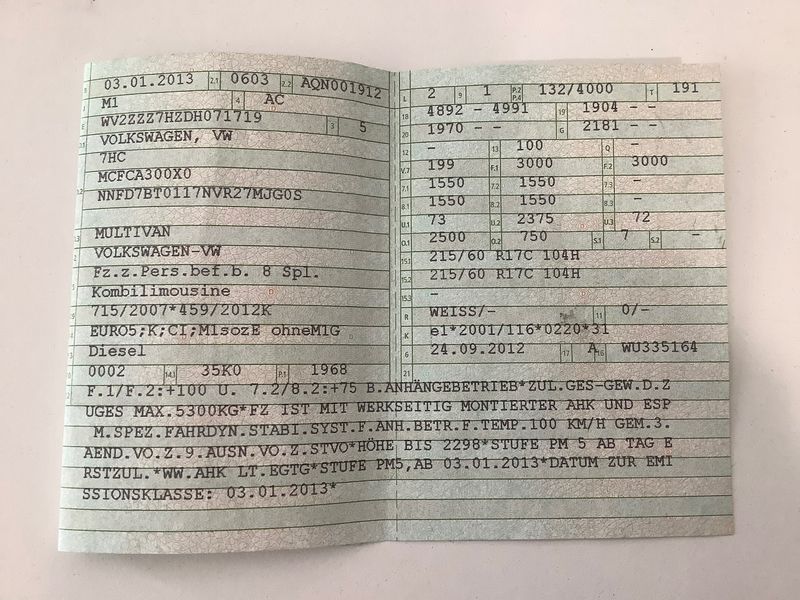 B 03.01.2013 2.1 0603 2.2 AQN001912
J M1 4 AC
E WV2ZZZ7HZDH071719 3 5
VOLKSWAGEN, VW
7HC
MCFCA300X0
NNFD7BT0117NVR27MJG0S
MULTIVAN
VOLKSWAGEN-VW
Fz.z.Pers.bef.b. 8 Spl.
Kombilimousine
715/2007*459/2012K
EURO5;K;CI;M1sozE ohneM1G
Diesel
0002 14.1 35K0 P.1 1968
L 2 9 1 P.2 P.4 132/4000 T 191
18 4892 - 4991 19 1904 - -
20 1970 - - G 2181 - -
12 - 13 100 Q -
V.7 199 F.1 3000 F.2 3000
7.1 1550 7.2 1550 7.3 -
8.1 1550 8.2 1550 8.3 -
U.1 73 U.2 2375 U.3 72
O.1 2500 O.2 750 S.1 7 S.2 -
15.1 215/60 R17C 104H
15.2 215/60 R17C 104H
15.3 -
R WEISS/- 11 0/-
K e1*2001/116*0220*31
6 24.09.2012 17 A 16 WU335164
21
F.1/F.2:+100 U. 7.2/8.2:+75 B.ANHÄNGEBETRIEB*ZUL.GES-GEW.D.Z
UGES MAX.5300KG*FZ IST MIT WERKSEITIG MONTIERTER AHK UND ESP
M.SPEZ.FAHRDYN.STABI.SYST.F.ANH.BETR.F.TEMP.100 KM/H GEM.3.
AEND.VO.Z.9.AUSN.VO.Z.STVO*HÖHE BIS 2298*STUFE PM 5 AB TAG E
RSTZUL.*WW.AHK LT.EGTG*STUFE PM5,AB 03.01.2013*DATUM ZUR EMI
SSIONSKLASSE: 03.01.2013*